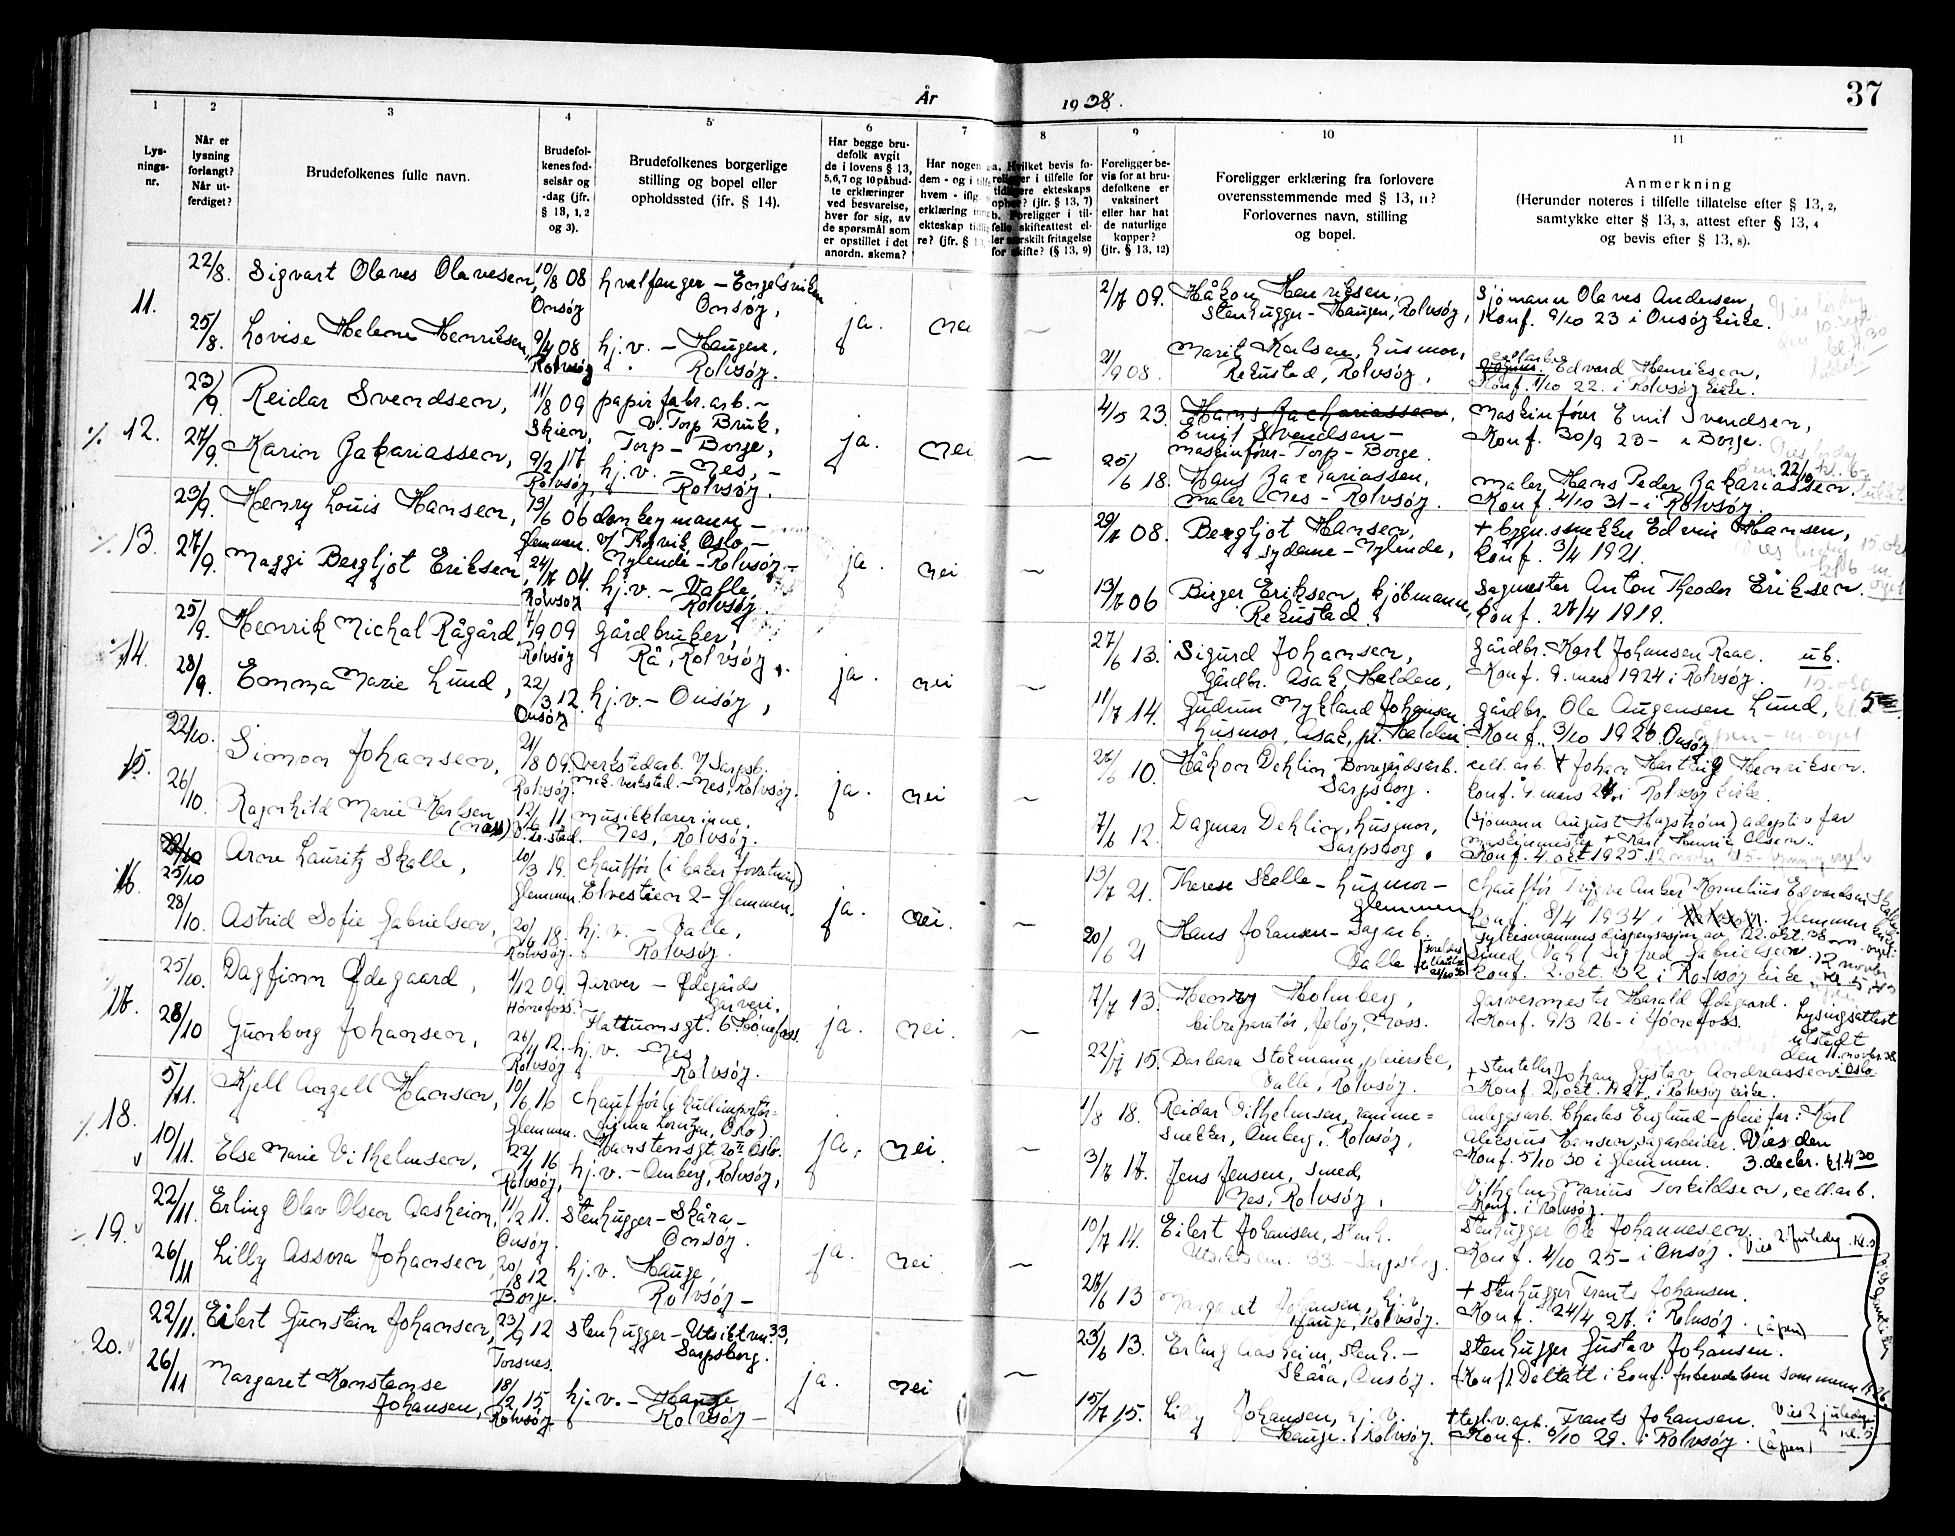 37
År
1938.
1
2
3
4
5
6
7
8
9
10
11
Lys-
nings-
nr.
Når er
lysning
forlangt?
Når ut-
ferdiget?
Brudefolkenes fulle navn.
Brudefol-
kenes fød-
selsår og
-dag (jfr.
§ 13, 1, 2
og 3).
Brudefolkenes borgerlige
stilling og bopel eller
opholdssted (ifr. § 14).
Har begge bru-
defolk avgit
de i lovens § 13,
5,6,7 og 10 påbud-
te erklæringer
ved besvarelse,
hver for sig, av
de spørsmål som
er opstillet i det
anordn. skema?
Har nogen
dem - og i
hvem -
erklæring
ekteskap
re? (jfr. §
Hvilket bevis fo-
religger i tilfelle for
ekteskaps
(jfr. § 13, 7)
b. Foreligger i til-
felle skifteattest el-
ler særskilt fritagelse
for skifte? (§ 13, 9)
Foreligger be-
vis for at bru-
defolkene er
vaksinert
eller har hat
de naturlige
kopper?
(jfr. § 13, 12)
Foreligger erklæring fra forlovere
overensstemmende med § 13, 11?
Forlovernes navn, stilling
og bopel.
Anmerkning
(Herunder noteres i tilfelle tillatelse efter § 13, 2,
samtykke efter § 13, 3, attest efter § 13, 4
og bevis efter § 13, 8).
11.
22/8.
Sigvart Olaves Olavesen,
10/8 08
Onsøy
hvalfanger – Engelsviken
Onsøy,
ja.
nei
2/7 09.
Håkon Henriksen,
Stenhugger – Haugen, Rolvsøy,
Sjømann Olaves Andersen,
Konf. 9/10 23 i Onsøy kirke.
25/8.
Lovise Helene Henriksen,
9/4 08
Rolvsøy
hj.v. – Haugen,
Rolvsøy.
21/9 08.
Marit Karlsen, husmor,
Rekustad, Rolvsøy,
Edvard Henriksen,
Konf. 1/10 22. i Rolvsøy kirke.
12.
23/9.
Reidar Svendsen,
11/8 09
Skien,
papirfabr.arb. –
v. Torp Bruk,
Torp – Borge,
ja.
nei
4/5 23.
Hans Zachariassen,
Emil Svendsen –
maskinfører – Torp – Borge.
Maskinfører Emil Svendsen,
Konf. 30/9 23 – i Borge.
27/9.
Karin Zakariassen,
9/2 17
Rolvsøy,
hj.v. – Nes, –
Rolvsøy.
25/6 18.
Hans Zachariassen,
maler – Nes – Rolvsøy.
maler Hans Peder Zakariassen.
Konf. 4/10 31 – i Rolvsøy.
13.
23/9.
Henry Louis Hansen,
13/6 06
Glemmen.
donkeymann –
Oslo –
Nylende – Rolvsøy –
ja.
nei
29/7 08.
Bergljot Hansen,
sydame – Nylende,
+ bygn.snekker Edvin Hansen,
Konf. 3/4 1921.
27/9.
Maggi Bergljot Eriksen,
24/7 04.
Rolvsøy
hj.v. – Valle,
Rolvsøy.
13/7 06
Birger Eriksen, kjøbmann,
Rekustad.
Sagmester Anton Theodor Eriksen.
Konf. 27/4 1919.
14.
25/9.
Henrik Michal Rågård,
7/1909
Rolvsøy
Gårdbruker,
Rå, Rolvsøy,
ja.
nei
27/6 13.
Sigurd Johansen,
Gårdbr. Asak, Halden,
Gårdbr. Karl Johansen Raae. ub.
Konf. 9. mars 1924 i Rolvsøy.
28/9.
Emma Marie Lund,
22/3 12.
Onsøy
hj.v. – Onsøy,
11/7 14.
Gudrun Nykland Johansen.
husmor, Asak, pr. Halden.
Gårdbr. Ole Augensen Lund,
Konf. 3/10 1926 Onsøy
15.
22/10.
Simon Johansen,
21/8 09.
Rolvsøy.
Verkstedarb. v/ Sarpsb.
mek. verksted. – Nes, Rolvsøy.
ja.
nei
27/6 10.
Håkon Dehlin, Borregårdsarb.
Sarpsborg.
cell.arb. + Johan Hartvig Henriksen.
Konf. 9. mars 24. i Rolvsøy kirke.
26/10.
Ragnhild Marie Karlsen
12/6 11.
musikklærerinne.
Nes, Rolvsøy.
7/6 12.
Dagmar Dehlin, husmor,
Sarpsborg,
(Sjømann August Hagstrøm) adoptivfar
+ Karl Henrik Olsen.
Konf. 4. okt 1925.
16.
25/10
Arne Lauritz Skalle,
10/3 19.
Glemmen.
chauffør (i baker forretning)
Elvestien 2 – Glemmen.
ja.
nei.
13/7 21.
Therese Skalle – husmor –
Glemmen
chauffør Trygve Anker Kornelius Edvardsen Skalle
Konf. 8/4 1934 i Glemmen kirke.
28/10.
Astrid Sofie Gabrielsen,
18.
Rolvsøy.
hj.v. – Valle,
Rolvsøy.
20/6 21
Hans Johansen – Sagarb.
Valle
Fylkesmannens dispensasjon av 22. okt. 38
Konf. 2. okt. 32 i Rolvsøy kirke.
17.
25/10.
Dagfinn Ødegaard,
1/12 09.
Hønefoss.
Garver – Ødegårds
Garveri.
Flattumsgt. 6 Hønefoss.
ja.
nei.
7/7 13.
Henry Holmberg,
bilreparatør, Jeløy, Moss.
Garvermester Harald Ødegaard.
Konf. 9/3 26 – i Hønefoss.
Lysingsattest
utstedt
den 11. novbr. 38
Oslo.
28/10
Gunborg Johansen,
26/1 12.
Rolvsøy
hj.v. Nes
Rolvsøy.
22/7 15.
Barbara Stokmann, pleierske,
Valle, Rolvsøy.
Johan Gustav Andreassen
Konf. 2. okt. 1927, i Rolvsøy kirke.
18.
5/11.
Kjell Angell Hansen,
10/6 16
Glemmen.
chauffør (i kullimportør-
firma Lorentzen, Oslo)
Oslo.
ja.
nei.
1/8 18.
Reidar Vilhelmsen,
Snekker, Omberg, Rolvsøy,
Anleggsarb. Charles Englund – pleiefar: Karl
Aleksius Hansen, sagarbeider. Vies den
Konf. 5/10 30 i Glemmen. 3. decbr. kl. 4 30
10/11.
Else Marie Vilhelmsen,
22/1 16
Rolvsøy,
hj.v. – Omberg, Rolvsøy,
3/7 17.
Jens Jensen, smed,
Nes, Rolvsøy,
Vilhelm Marius Torkildsen, cell.arb.
Konf. i Rolvsøy.
19.
22/11.
Erling Olav Olsen Aasheim,
11/2 11.
Onsøy.
Stenhugger – Skåra –
Onsøy.
ja.
nei.
10/7 14.
Eilert Johansen, stenh.
33. – Sarpsborg.
Stenhugger Ole Johannesen
Konf. 4/10 25 – i Onsøy. Vies 2. juledag kl. 5
26/11
Lilly Assora Johansen,
20/8 12
Borge.
hj.v. Hauge,
Rolvsøy –
27/6 13
Margaret Johansen, hj.v.
Hauge, Rolvsøy.
+ Stenhugger Frants Johansen.
Konf. 24/4 27. i Rolvsøy. (åpen)
20.
22/11.
Eilert Gunstein Johansen,
23/9 12
Torsnes.
Stenhugger – Utsiktvn 33,
Sarpsborg.
ja.
nei
23/6 13.
Erling Aasheim, stenh. –
Skåra, Onsøy.
Stenhugger Gustav Johansen.
(Konf). Deltatt i konf. forberedelsen sommeren 1926
26/11
Margaret Konstanse
Johansen,
18/2 15
Rolvsøy
hj.v. – Hauge
Rolvsøy –
15/7 15.
Lilly Johansen, hj.v.
Hauge. Rolvsøy.
Frants Johansen. Vies 2 juledag
Konf. 6/10 29. i Rolvsøy. (åpen) kl. 5